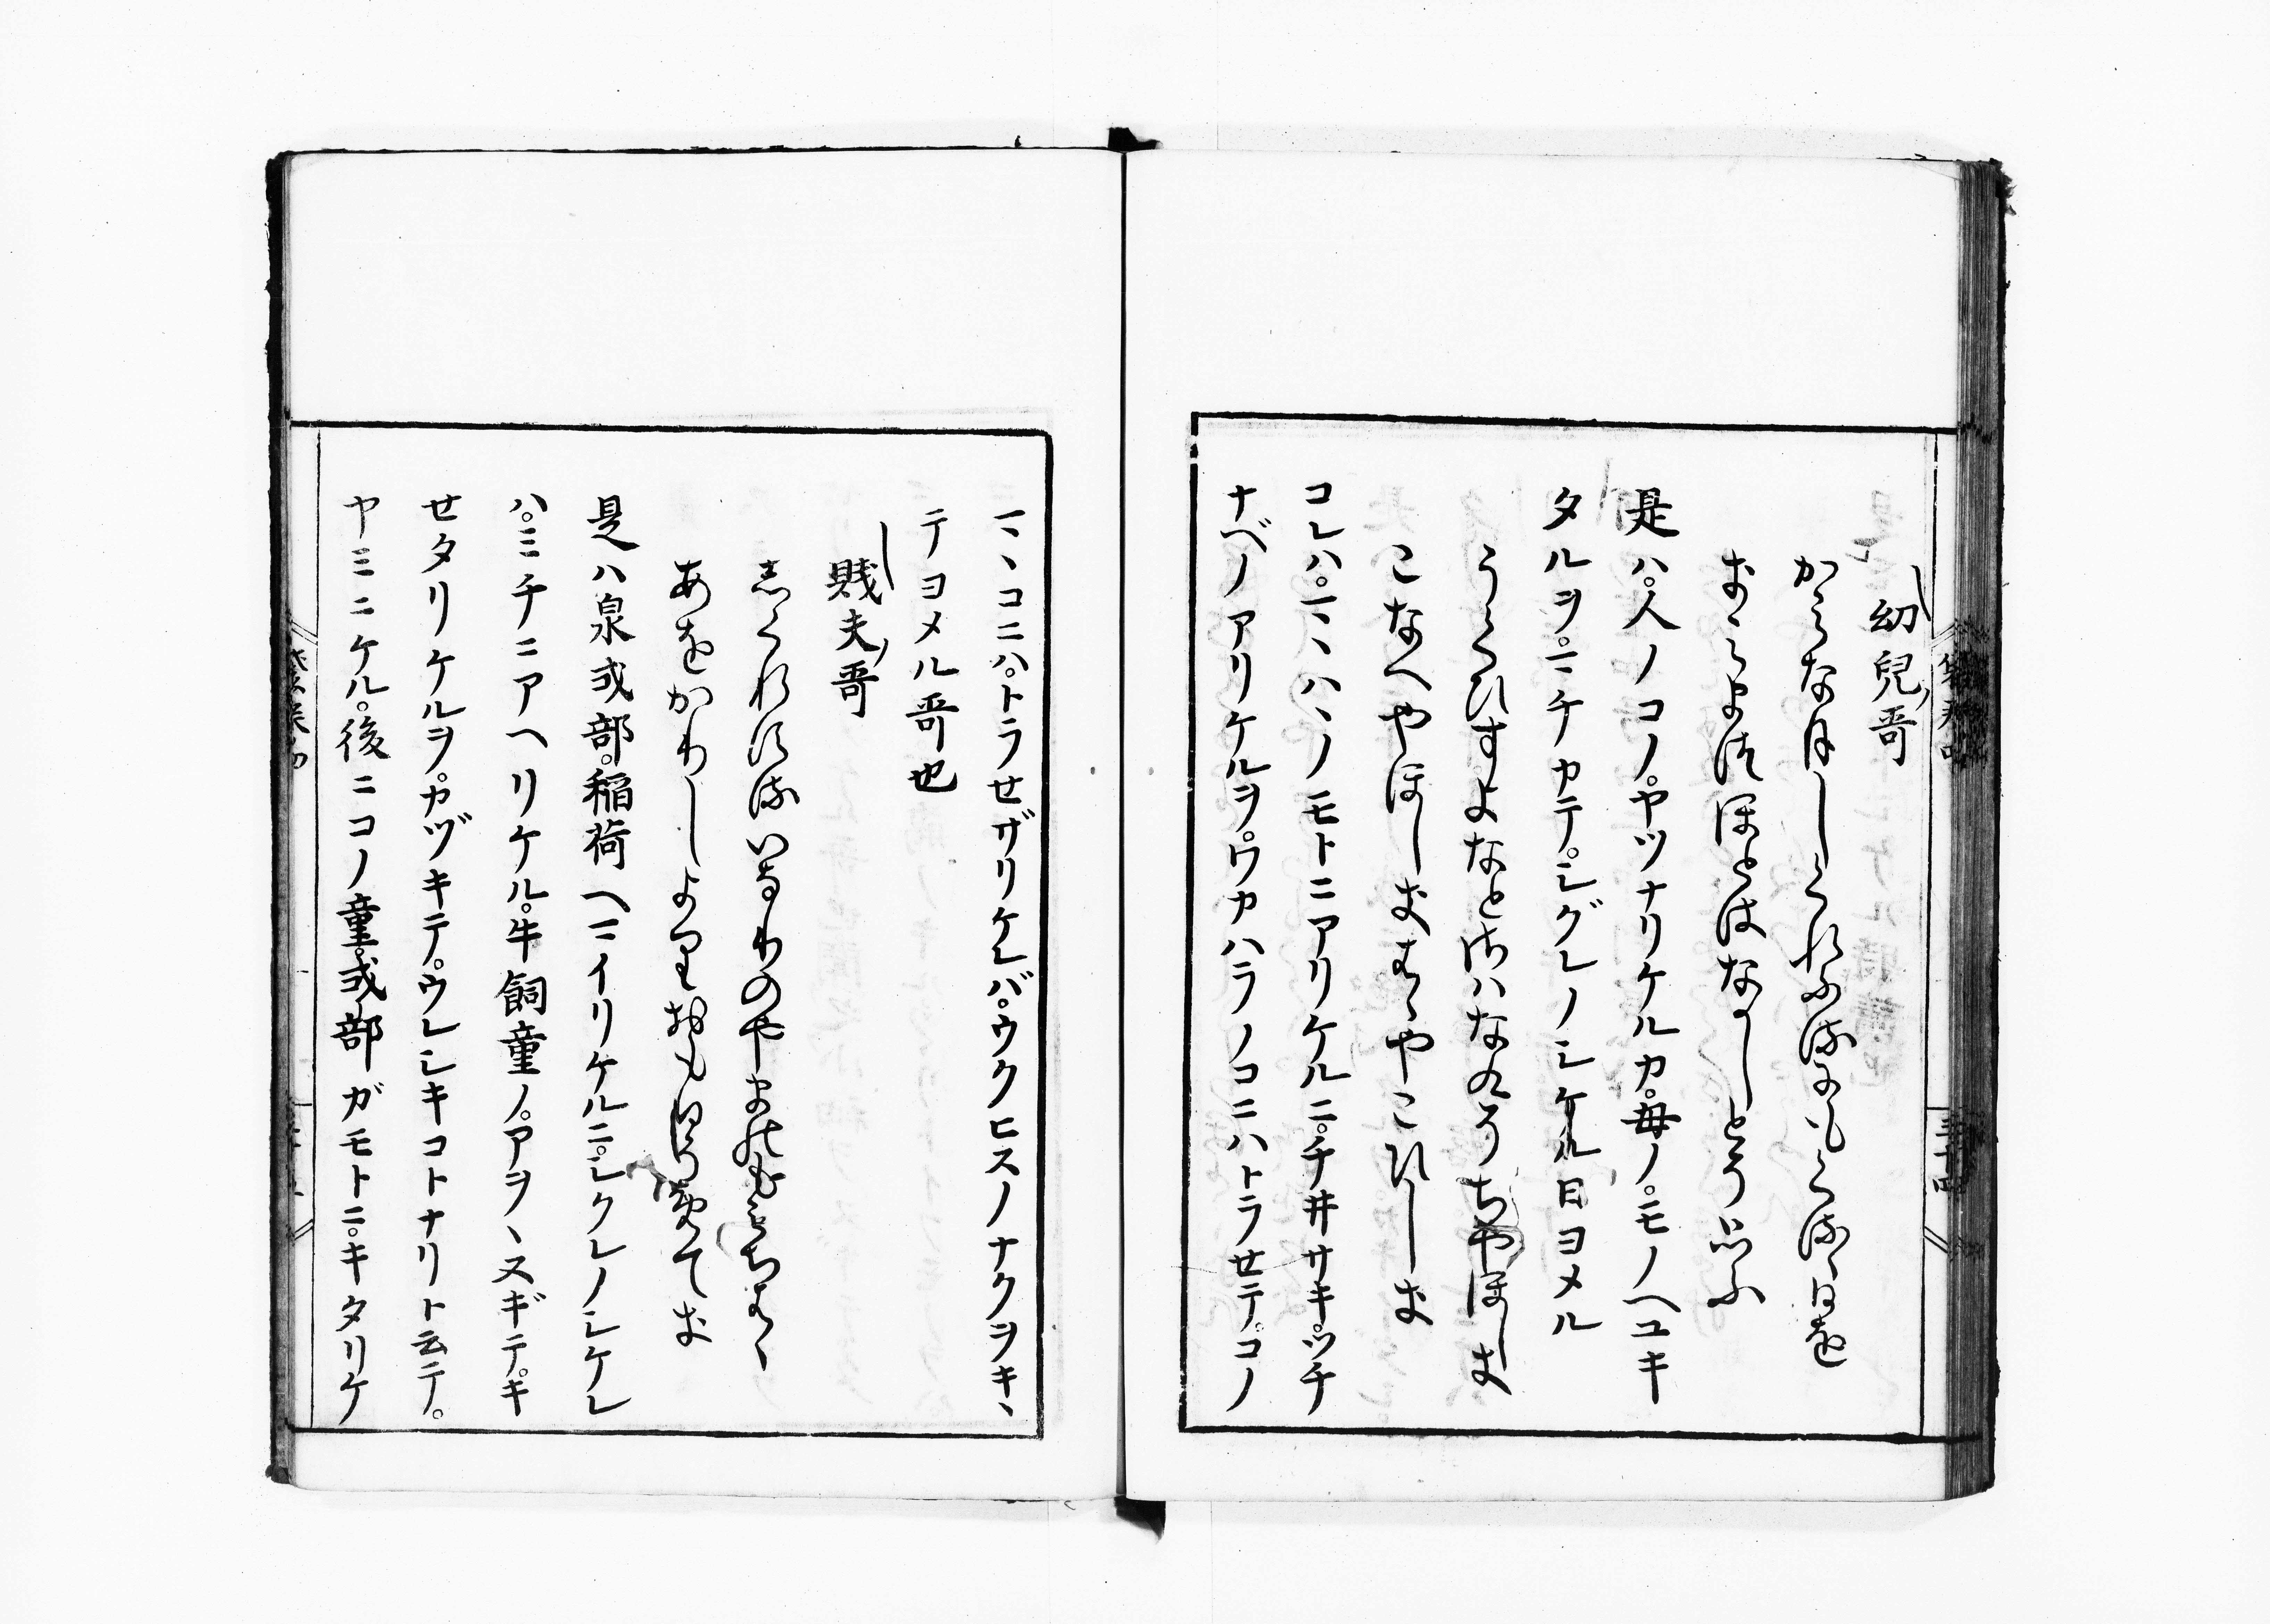 袋草四
三十四
幼兒ノ哥
かみな月しくれふるにもくるゝ日を
きみまつほとはなかしとそ思ふ
是ハ。人ノコノ。ヤツナリケルカ。母ノ。モノヘユキ
タルヲ。マチカテ。シグレノシケル日ヨメル
うくひすよなとさハなくそちやほしき
こなへやほしきはゝやこひしき
コレハ。マヽハヽノモトニアリケルニ。チ井サキ。ツチ
ナベノアリケルヲ。ワカハラノコニハトラセテ。コノ
マヽコニハ。トラセザリケレバ。ウクヒスノナクヲキヽ
テヨメル哥也
賤夫ノ哥
しくれするいなりのやまのもみちはゝ
あをかりしよりおもひそめてき
是ハ泉式部。稲荷ヘマイリケルニ。シクレノシケレ
ハ。ミチニアヘリケル。牛飼童ノ。アヲヽヌギテ。キ
セタリケルヲ。カヅキテ。ウレシキコトナリト云テ。
ヤミニケル。後ニコノ童。式部ガモトニ。キタリケ